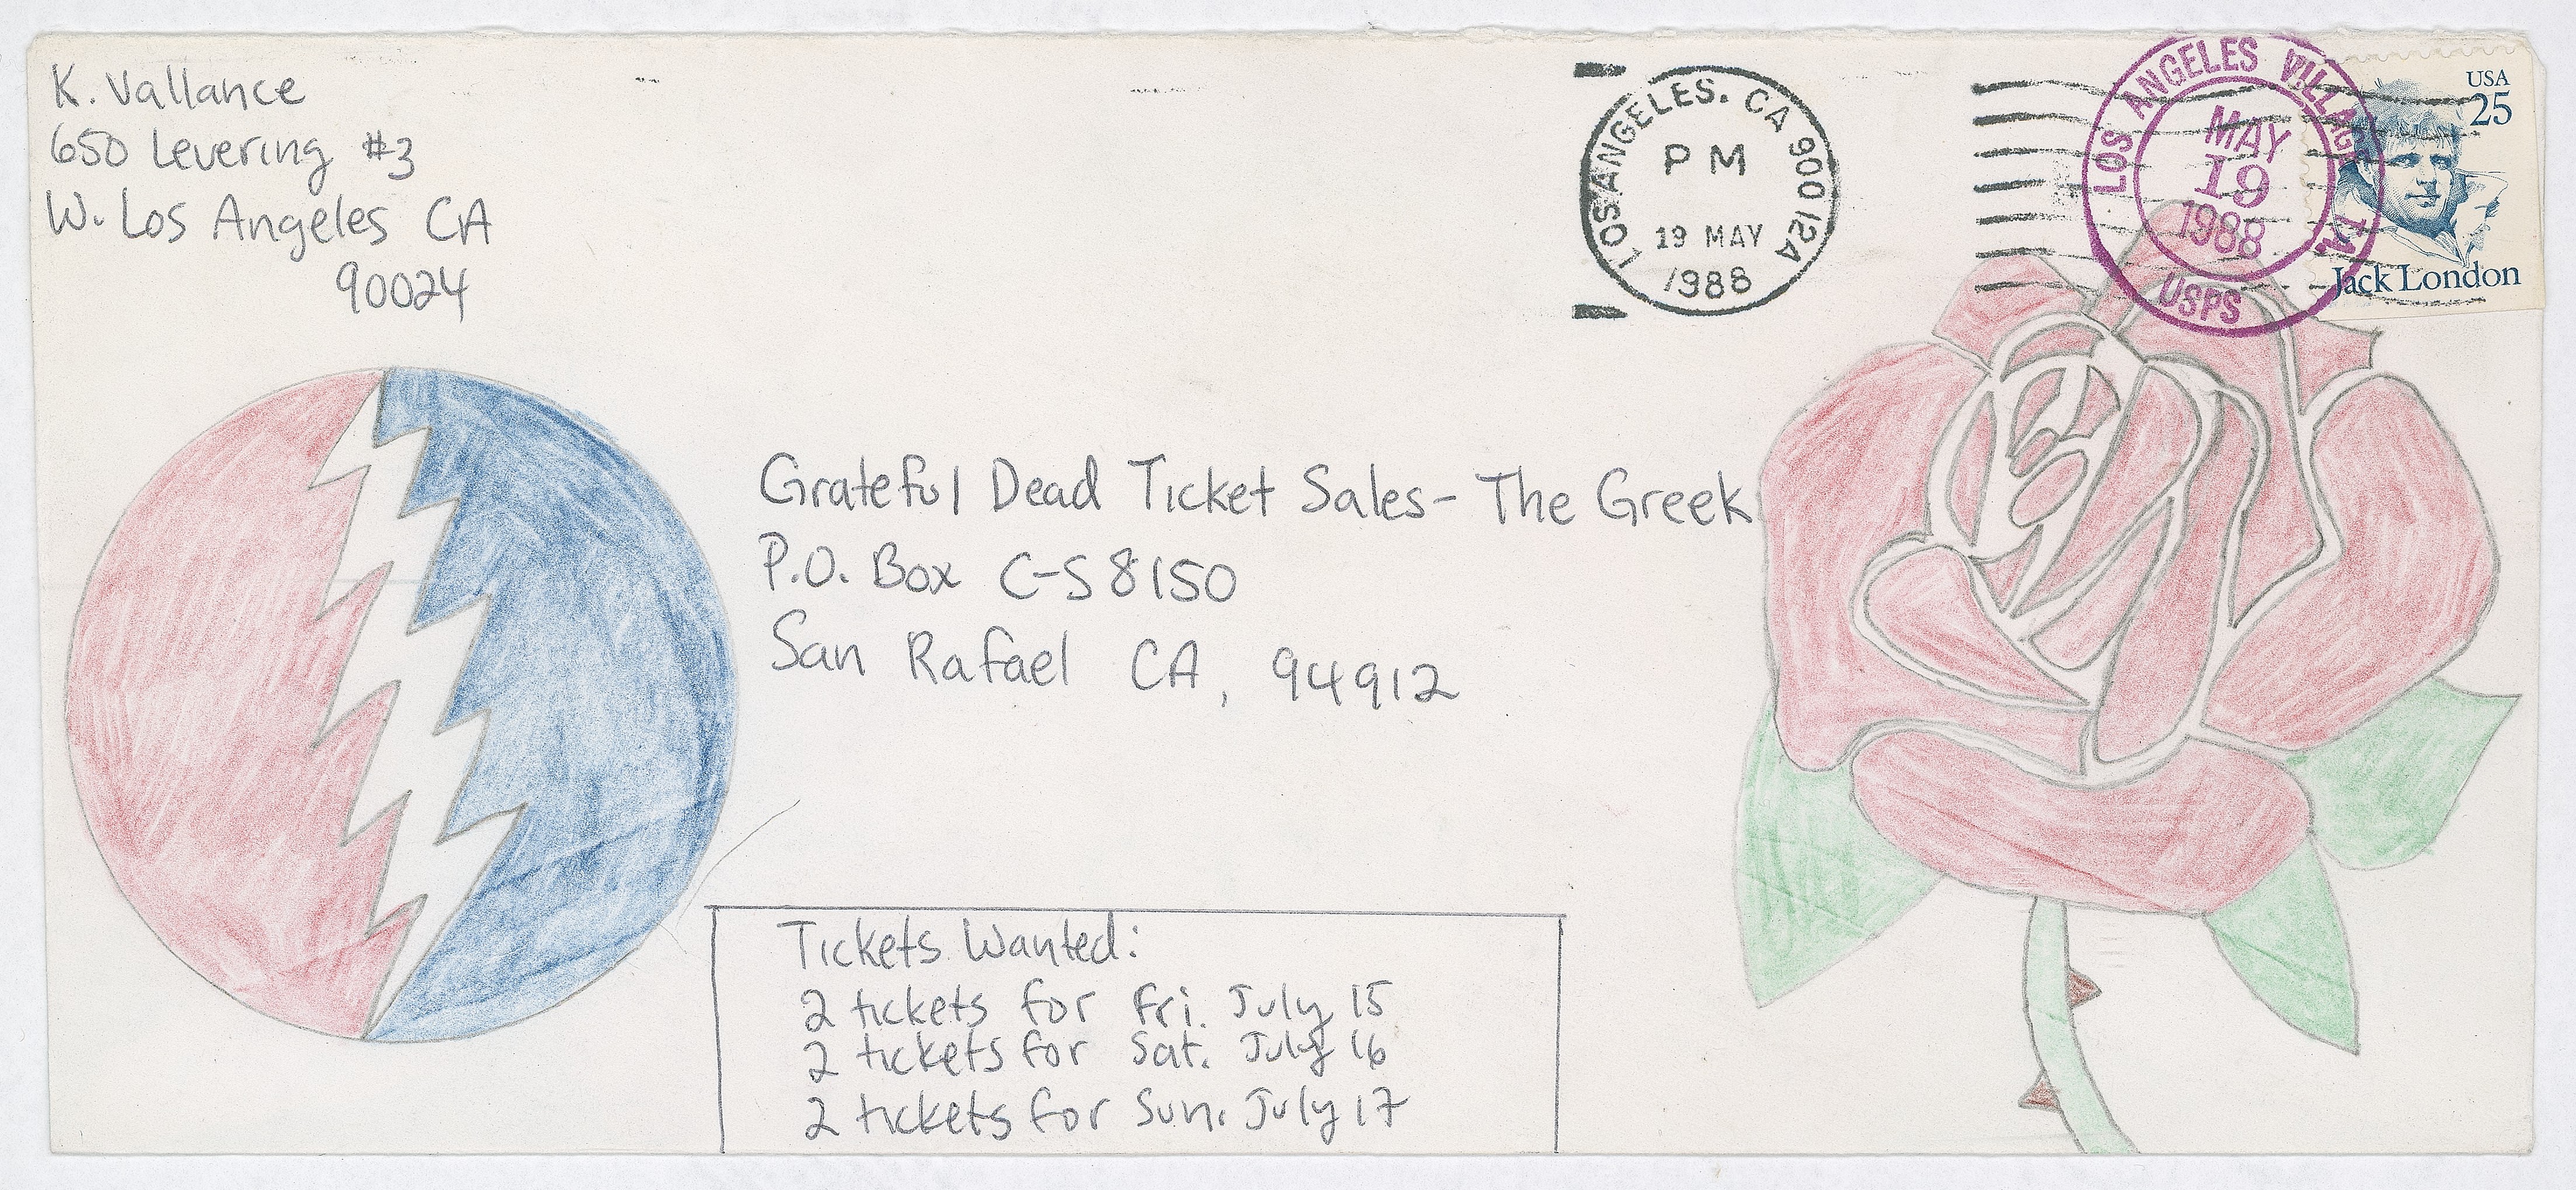 K. Vallance
650 Levering #3
W. Los Angeles CA
90024
LOS ANGELES. CA 900 12A
PM
19 MAY
1988
LOS ANGELES VILLAGE
MAY
19
1988
USPS
USA
25
Jack London
Grateful Dead Ticket Sales- The Greek
P.O. Box C-S 8150
San Rafael CA, 94912
Tickets Wanted:
2 tickets for Fri. July 15
2 tickets for Sat. July 16
2 tickets for Sun. July 17